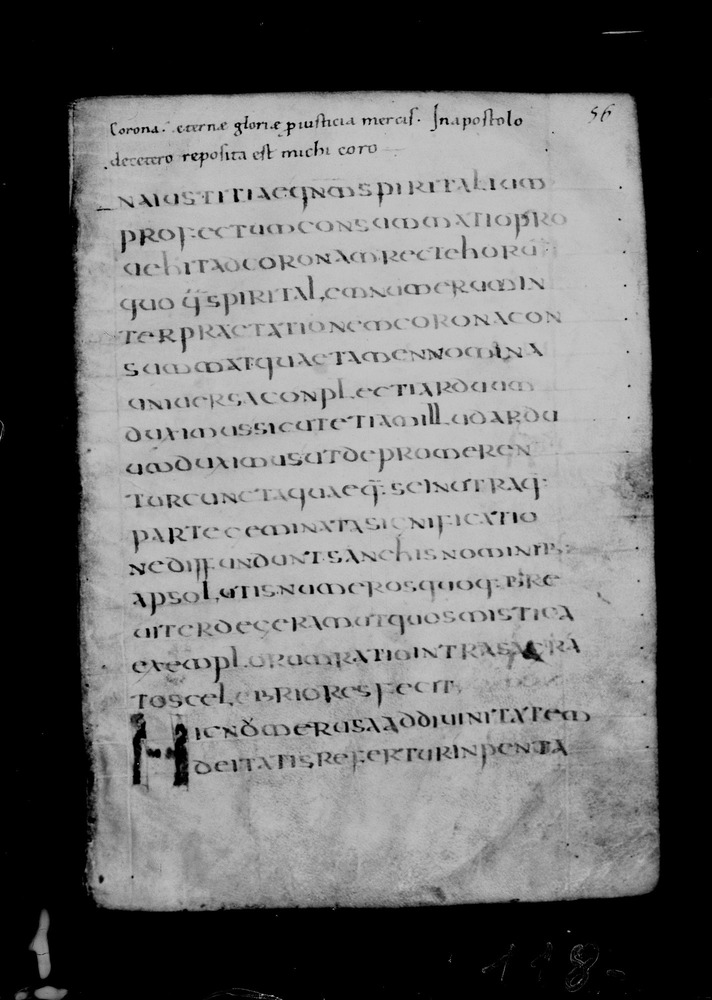 56
Corona. eternę glorię p iusticia mercis. In apostolo
de cetero reposita est michi coro
NAIUSTITIAEQNMSPIRITALIUM
PROFECTUMCONSUMMATIOPRO
UEHITADCORONAMRECTEHORU
QUO Q SPIRITALEMNUMERUMIN
TERPRAETATIONEMCORONACON
SUMMATQUAETAMENNOMINA
UNIUERSACONPLECTIARDUUM
DUXIMUSSICUTETIAMILLUDARDU
UMDUXIMUSUTDEPROMEREN
TURCUNCTAQUAEQ: SEINUTRAQ:
PARTEGEMINATASIGNIFICATIO
NEDIFFUNDUNTSANCHISNOMINIB:
APSOLUTISNUMEROSQUOQ:BRE
UITERDEGERAMUTQUOSMISTICA
EXEMPLORUMRATIOINTRASACRA
TOSCELEBRIORESFECIT
HICNUMERUSAADDIUINITATEM
DEITATISREFERTURINPENTA
118